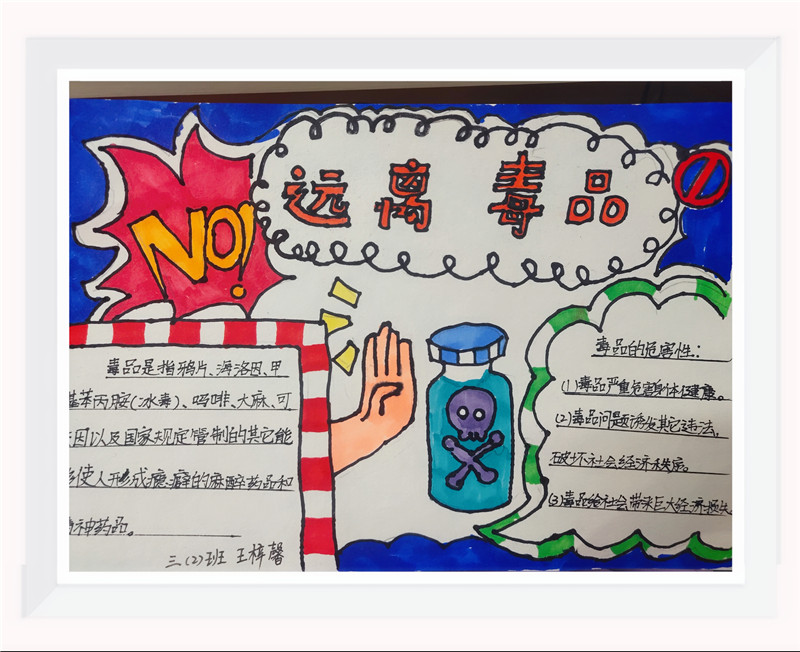 NO!
远离毒品
毒品是指鸦片、海洛因、甲
基苯丙胺(冰毒)、吗啡、大麻、可
因以及国家规定管制的其它能
使人形成瘾癖的麻醉药品和
神药品。
三(2)班 王梓馨
毒品的危害性:
(1)毒品严重危害身体健康。
(2)毒品问题诱发其它违法,
破坏社会经济秩序。
(3)毒品给社会带来巨大经济损失